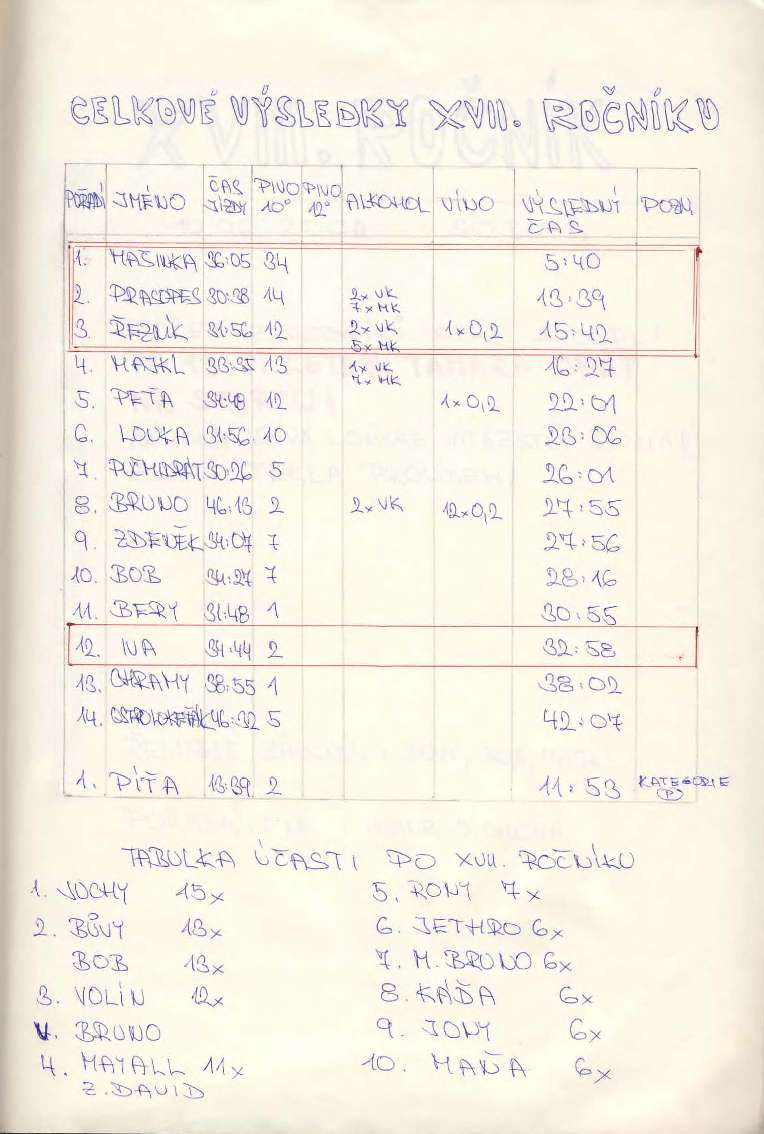 CELKOVÉ VÝSLEDKY XVII. ROČNÍKU
POŘADÍ JMÉNO ČAS JÍZDY PIVO 10° PIVO 12° ALKOHOL VÍNO VÝSLEDNÝ ČAS POZN
1. MAŠINKA 36:05 34 5:40
2. PRASOPES 30:38 14 2x VK 7x MK 13:39
3. ŘEZNÍK 31:56 12 2x VK 5x MK 1x0,2 15:42
4. MAJKL 33:35 13 1x VK 7x MK 16:27
5. PEŤA 34:48 12 1x0,2 22:01
6. LOUKA 31:56 10 23:06
7. 30:26 5 26:01
8. BRUNO 46:13 2 2x VK 12x0,2 27:55
9. ZDENĚK 34:07 7 27:56
10. BOB 34:27 7 28:16
11. BERY 31:48 1 30:55
12. IVA 34:44 2 32:58
13. CHRAMY 38:55 1 38:02
14. 46:32 5 42:07
1. PÍŤA 13:39 2 11:53 KATEGORIE P
TABULKA ÚČASTI PO XVII. ROČNÍKU
1. JOCHY 15x
2. BŮVY 13x
BOB 13x
3. VOLÍN 12x
BRUNO
4. MAYALL 11x
Z. DAVID
5. RONY 7x
6. JETHRO 6x
7. M. BRUNO 6x
8. KÁĎA 6x
9. JONY 6x
10. MAŇA 6x